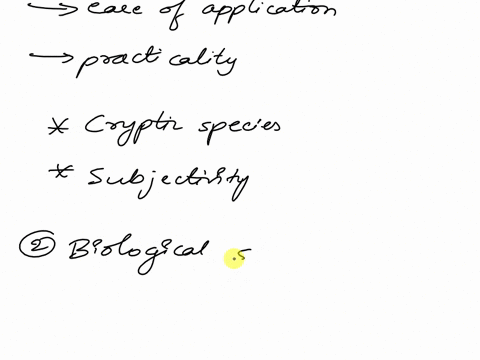 → ease of application
→ practicality
* Cryptic species
* Subjectivity
② Biological s